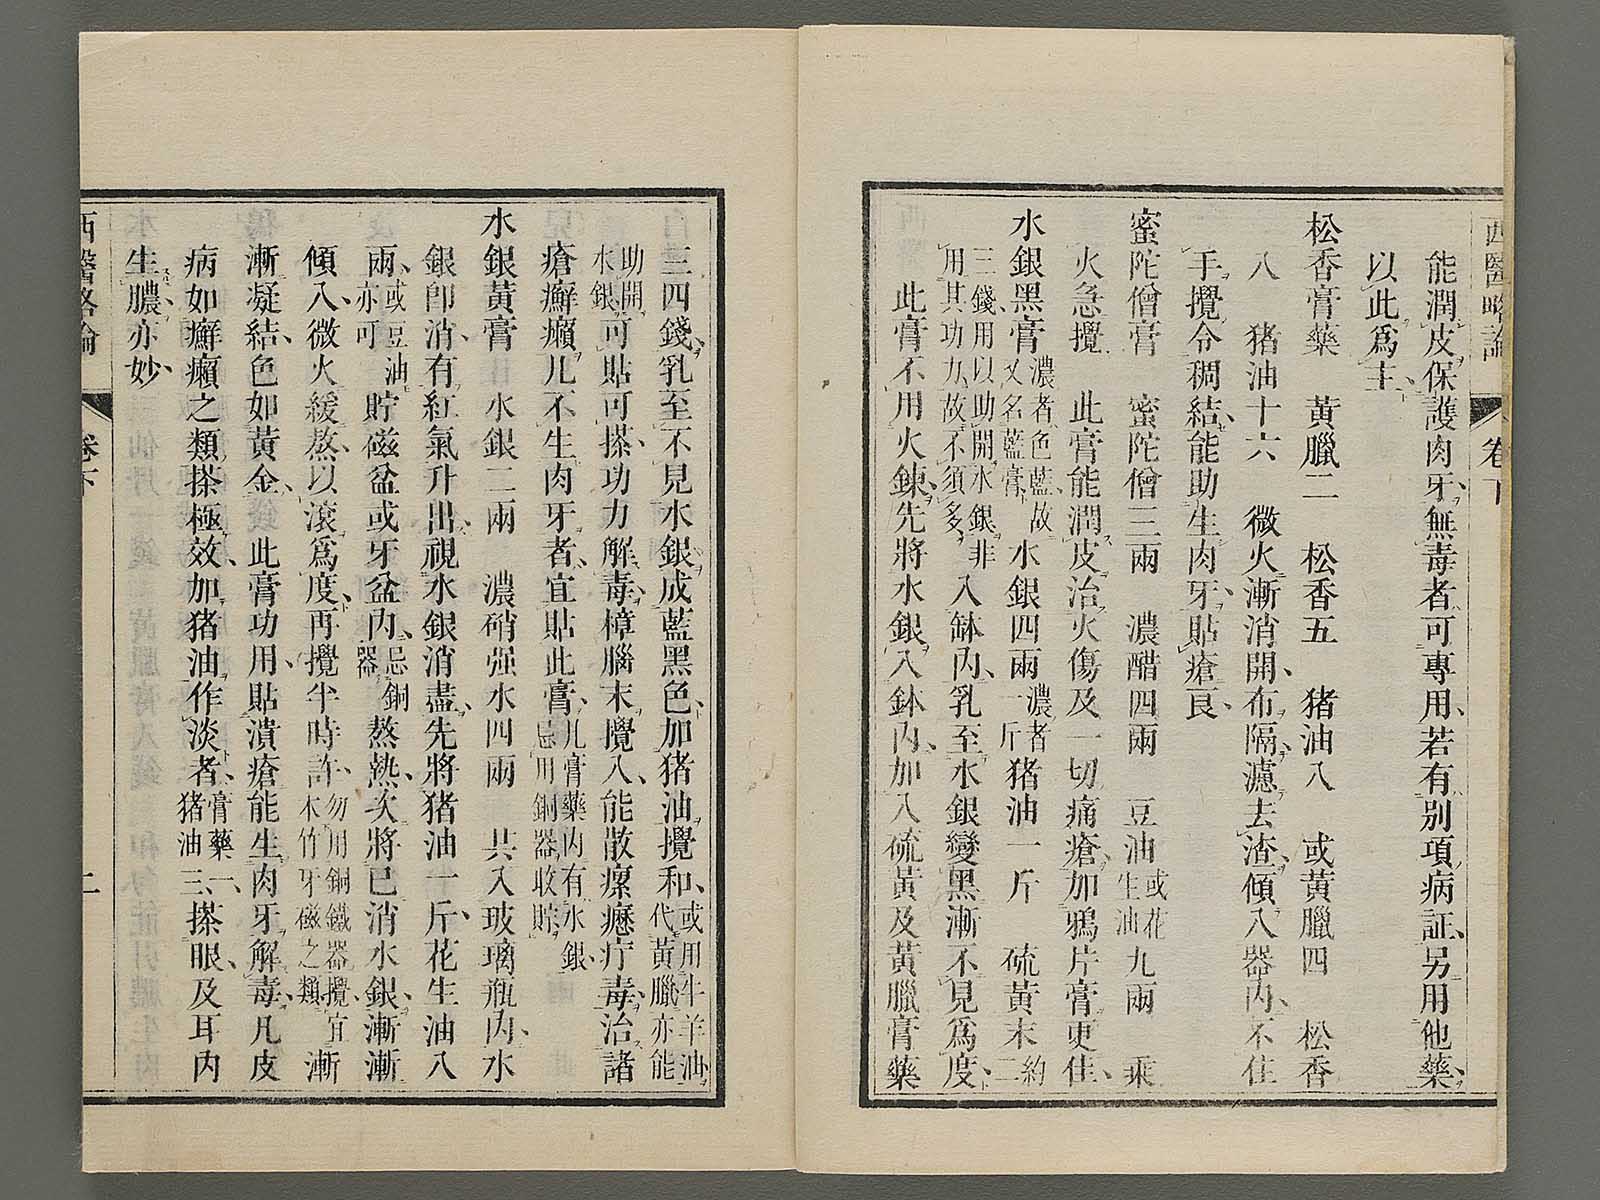 西醫略論
卷下
能潤皮保護肉牙無毒者可專用若有別項病証另用他藥
以此爲主
松香膏藥　黃臘二　松香五　猪油八　或黃臘四　松香
八　猪油十六　微火漸消開布隔濾去渣傾入器內不住
手攪令稠結能助生肉牙貼瘡良
蜜陀僧膏　蜜陀僧三兩　濃醋四兩　豆油或花生油九兩　乘
火急攪　此膏能潤皮治火傷及一切痛瘡加鴉片膏更佳
水銀黑膏濃者色藍故又名藍膏　水銀四兩濃者一斤猪油一斤　硫黃末約二
三錢用以助開水銀非用其功力故不須多　入缽內乳至水銀變黑漸不見爲度
此膏不用火錬先將水銀入鉢內加入硫黃及黃臘膏藥
三四錢乳至不見水銀成藍黑色加猪油攪和或用牛羊油代黃臘亦能
助開水銀可貼可搽功力解毒樟腦末攪入能散瘰癧疔毒治諸
瘡癬癩凡不生肉牙者宜貼此膏凡膏藥內有水銀忌用銅器收貯
水銀黃膏　水銀二兩　濃硝强水四兩　共入玻璃瓶內水
銀卽消有紅氣升出視水銀消盡先將猪油一斤花生油八
兩或豆油亦可　貯磁盆或牙盆內忌銅器熬熱次將已消水銀漸漸
傾入微火緩熬以滾爲度再攪半時許勿用銅鐵器攪宜木竹牙磁之類　漸
漸凝結色如黃金此膏功用貼潰瘡能生肉牙解毒凡皮
病如癬癩之類搽極效加猪油作淡者膏藥一猪油三搽眼及耳內
生膿亦妙
西醫略論
卷下
二